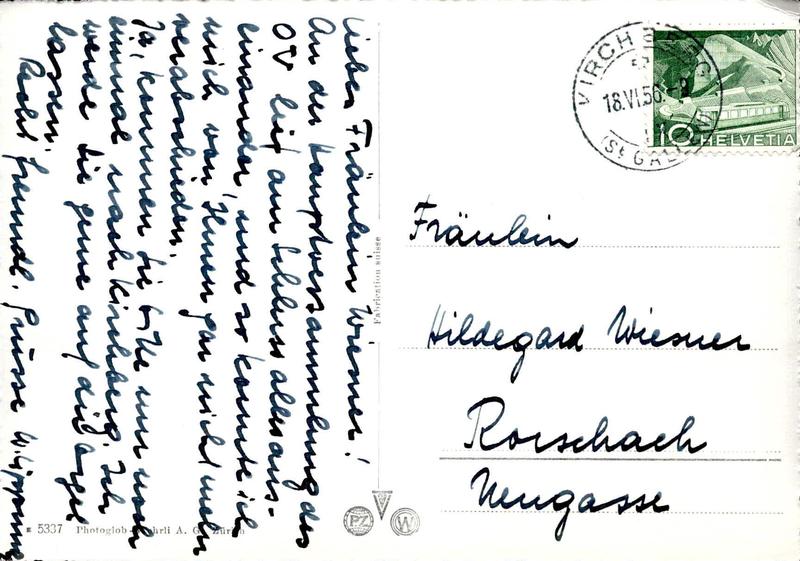 Liebes Fräulein Wiesner!
An der Hauptversammlung des
OV lief am Schluss alles aus-
einander, und so konnte ich
mich von Ihnen gar nicht mehr
verabschieden.
Ja, kommen Sie bitte nur noch
einmal nach Kirchberg. Ich
werde Sie gerne auf die Orgel
lassen.
Recht freundl. Grüsse
Fabrication suisse
KIRCHBERG
18.VI.56.
(St GALLEN)
10 HELVETIA
Fräulein
Hildegard Wiesner
Rorschach
Neugasse
5337 Photoglob-Wehrli A. G. Zürich
PZ W